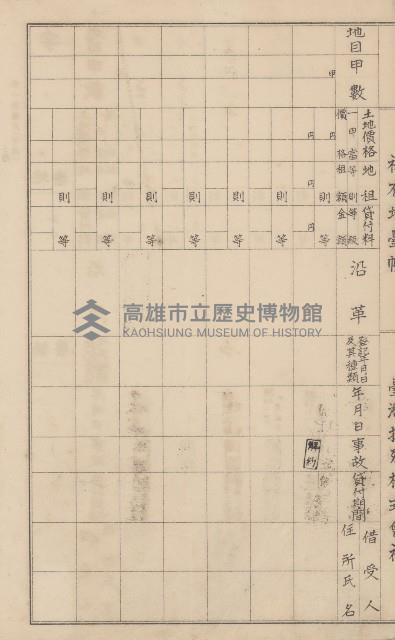 社有地臺帳
臺灣拓殖株式會社
地目 甲數
甲
土地價格 地租 貸付料
一甲當 等則 等級
價格 租額 金額
円 円 円 円
則 等
則 等
則 等
則 等
則 等
則 等
則 等
沿革
登記年月日及其種類
年月日
事故
貸付期間
借受人
住所氏名
解約
高雄市立歷史博物館
KAOHSIUNG MUSEUM OF HISTORY